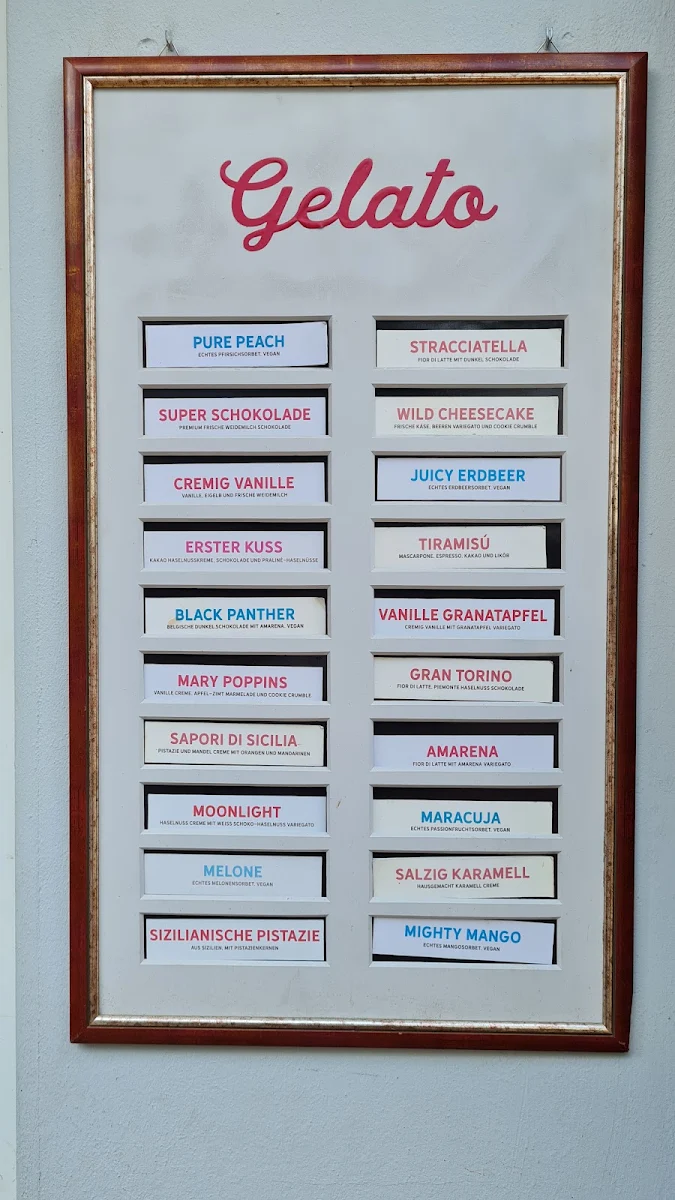 Gelato
PURE PEACH
ECHTES PFIRSICHSORBET. VEGAN
SUPER SCHOKOLADE
PREMIUM FRISCHE WEIDEMILCH SCHOKOLADE
CREMIG VANILLE
VANILLE, EIGELB UND FRISCHE WEIDEMILCH
ERSTER KUSS
KAKAO HASELNUSSKREME, SCHOKOLADE UND PRALINÉ-HASELNÜSSE
BLACK PANTHER
BELGISCHE DUNKEL SCHOKOLADE MIT AMARENA. VEGAN
MARY POPPINS
VANILLE CREME, APFEL-ZIMT MARMELADE UND COOKIE CRUMBLE
SAPORI DI SICILIA
PISTAZIE UND MANDEL CREME MIT ORANGEN UND MANDARINEN
MOONLIGHT
HASELNUSS CREME MIT WEISS SCHOKO-HASELNUSS VARIEGATO
MELONE
ECHTES MELONENSORBET. VEGAN
SIZILIANISCHE PISTAZIE
AUS SIZILIEN. MIT PISTAZIENKERNEN
STRACCIATELLA
FIOR DI LATTE MIT DUNKEL SCHOKOLADE
WILD CHEESECAKE
FRISCHE KÄSE, BEEREN VARIEGATO UND COOKIE CRUMBLE
JUICY ERDBEER
ECHTES ERDBEERSORBET. VEGAN
TIRAMISÚ
MASCARPONE, ESPRESSO, KAKAO UND LIKÖR
VANILLE GRANATAPFEL
CREMIG VANILLE MIT GRANATAPFEL VARIEGATO
GRAN TORINO
FIOR DI LATTE, PIEMONTE HASELNUSS SCHOKOLADE
AMARENA
FIOR DI LATTE MIT AMARENA VARIEGATO
MARACUJA
ECHTES PASSIONFRUCHTSORBET. VEGAN
SALZIG KARAMELL
HAUSGEMACHT KARAMELL CREME
MIGHTY MANGO
ECHTES MANGOSORBET. VEGAN